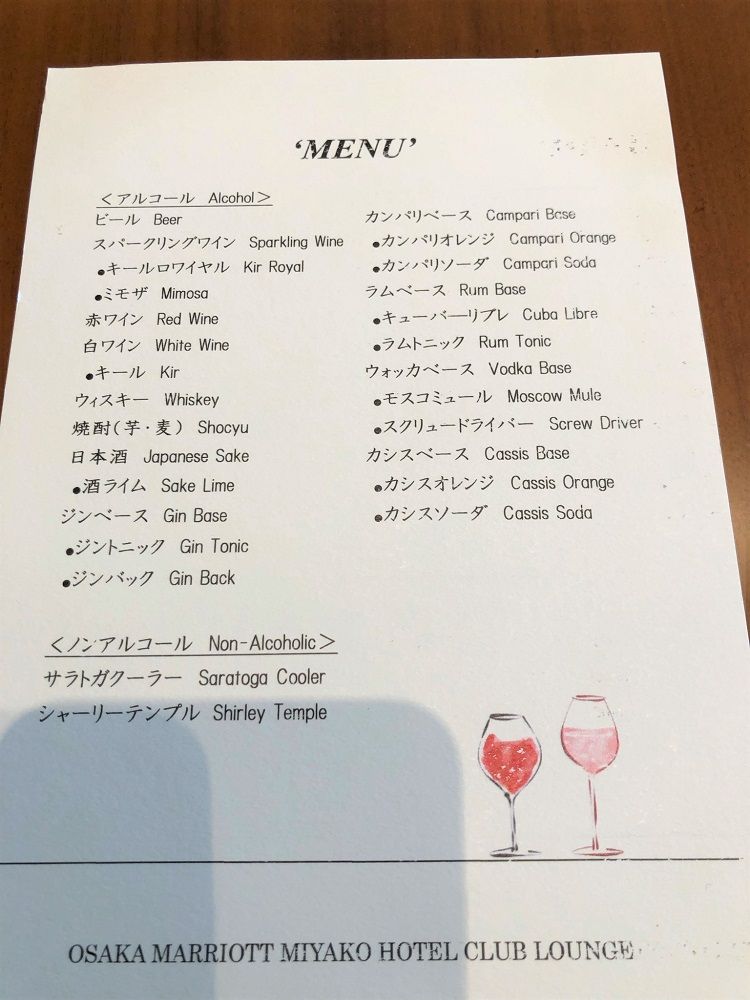 ‘MENU’
＜アルコール Alcohol＞
ビール Beer
スパークリングワイン Sparkling Wine
●キールロワイヤル Kir Royal
●ミモザ Mimosa
赤ワイン Red Wine
白ワイン White Wine
●キール Kir
ウィスキー Whiskey
焼酎(芋・麦) Shocyu
日本酒 Japanese Sake
●酒ライム Sake Lime
ジンベース Gin Base
●ジントニック Gin Tonic
●ジンバック Gin Back
カンパリベース Campari Base
●カンパリオレンジ Campari Orange
●カンパリソーダ Campari Soda
ラムベース Rum Base
●キューバーリブレ Cuba Libre
●ラムトニック Rum Tonic
ウォッカベース Vodka Base
●モスコミュール Moscow Mule
●スクリュードライバー Screw Driver
カシスベース Cassis Base
●カシスオレンジ Cassis Orange
●カシスソーダ Cassis Soda
＜ノンアルコール Non-Alcoholic＞
サラトガクーラー Saratoga Cooler
シャーリーテンプル Shirley Temple
OSAKA MARRIOTT MIYAKO HOTEL CLUB LOUNGE